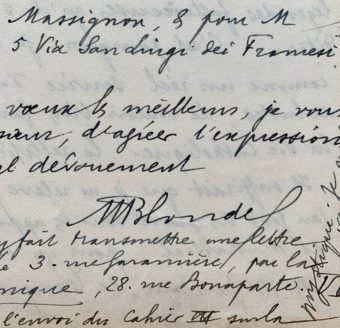 Massignon, 8 pour M
5 Via San Luigi dei Francesi
vœux les meilleurs, je vous
d'agréer l'expression
dévouement
MBlondel
fait transmettre une lettre
3 - rue Garancière, par la
nique, 28. rue Bonaparte.
l'envoi du Cahier III sur la
mystique. Je